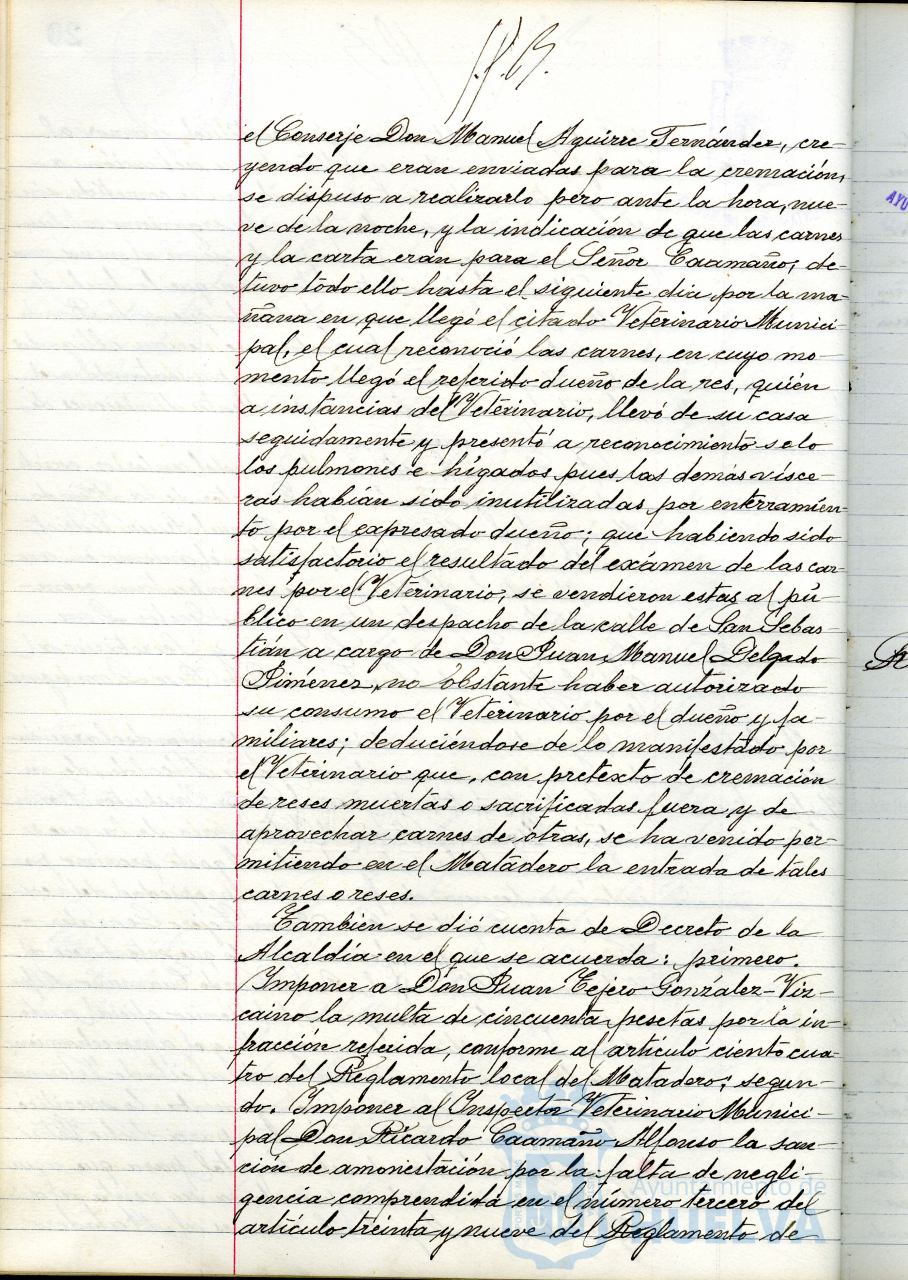 el Conserje Don Manuel Aguirre Fernández, cre-
yendo que eran enviadas para la cremación,
se dispuso a realizarlo pero ante la hora, nue-
ve de la noche, y la indicación de que las carnes
y la carta eran para el Señor Caamaño; de-
tuvo todo ello hasta el siguiente dia por la ma-
ñana en que llegó el citado Veterinario Munici-
pal, el cual reconoció las carnes, en cuyo mo-
mento llegó el referido dueño de la res, quién
a instancias del Veterinario, llevó de su casa
seguidamente y presentó a reconocimiento solo
los pulmones e hígados pues las demás vísce-
ras habían sido inutilizadas por enterramien-
to por el expresado dueño; que habiendo sido
satisfactorio el resultado del exámen de las car-
nes por el Veterinario, se vendieron estas al pú-
blico en un despacho de la calle de San Sebas-
tián a cargo de Don Juan Manuel Delgado
Jiménez, no obstante haber autorizado
su consumo el Veterinario por el dueño y fa-
miliares; deduciéndose de lo manifestado por
el Veterinario que, con pretexto de cremación
de reses muertas o sacrificadas fuera y de
aprovechar carnes de otras, se ha venido per-
mitiendo en el Matadero la entrada de tales
carnes o reses.
Tambien se dió cuenta de Decreto de la
Alcaldía en el que se acuerda: primero.
Imponer a Don Juan Tejero González-Viz-
caino la multa de cincuenta pesetas por la in-
fracción referida, conforme al artículo ciento cua-
tro del Reglamento local del Matadero; segun-
do. Imponer al Inspector Veterinario Munici-
pal Don Ricardo Caamaño Alfonso la san-
ción de amonestación por la falta de negli-
gencia comprendida en el número tercero del
artículo treinta y nueve del Reglamento de
Ayuntamiento de
HUELVA
AYU